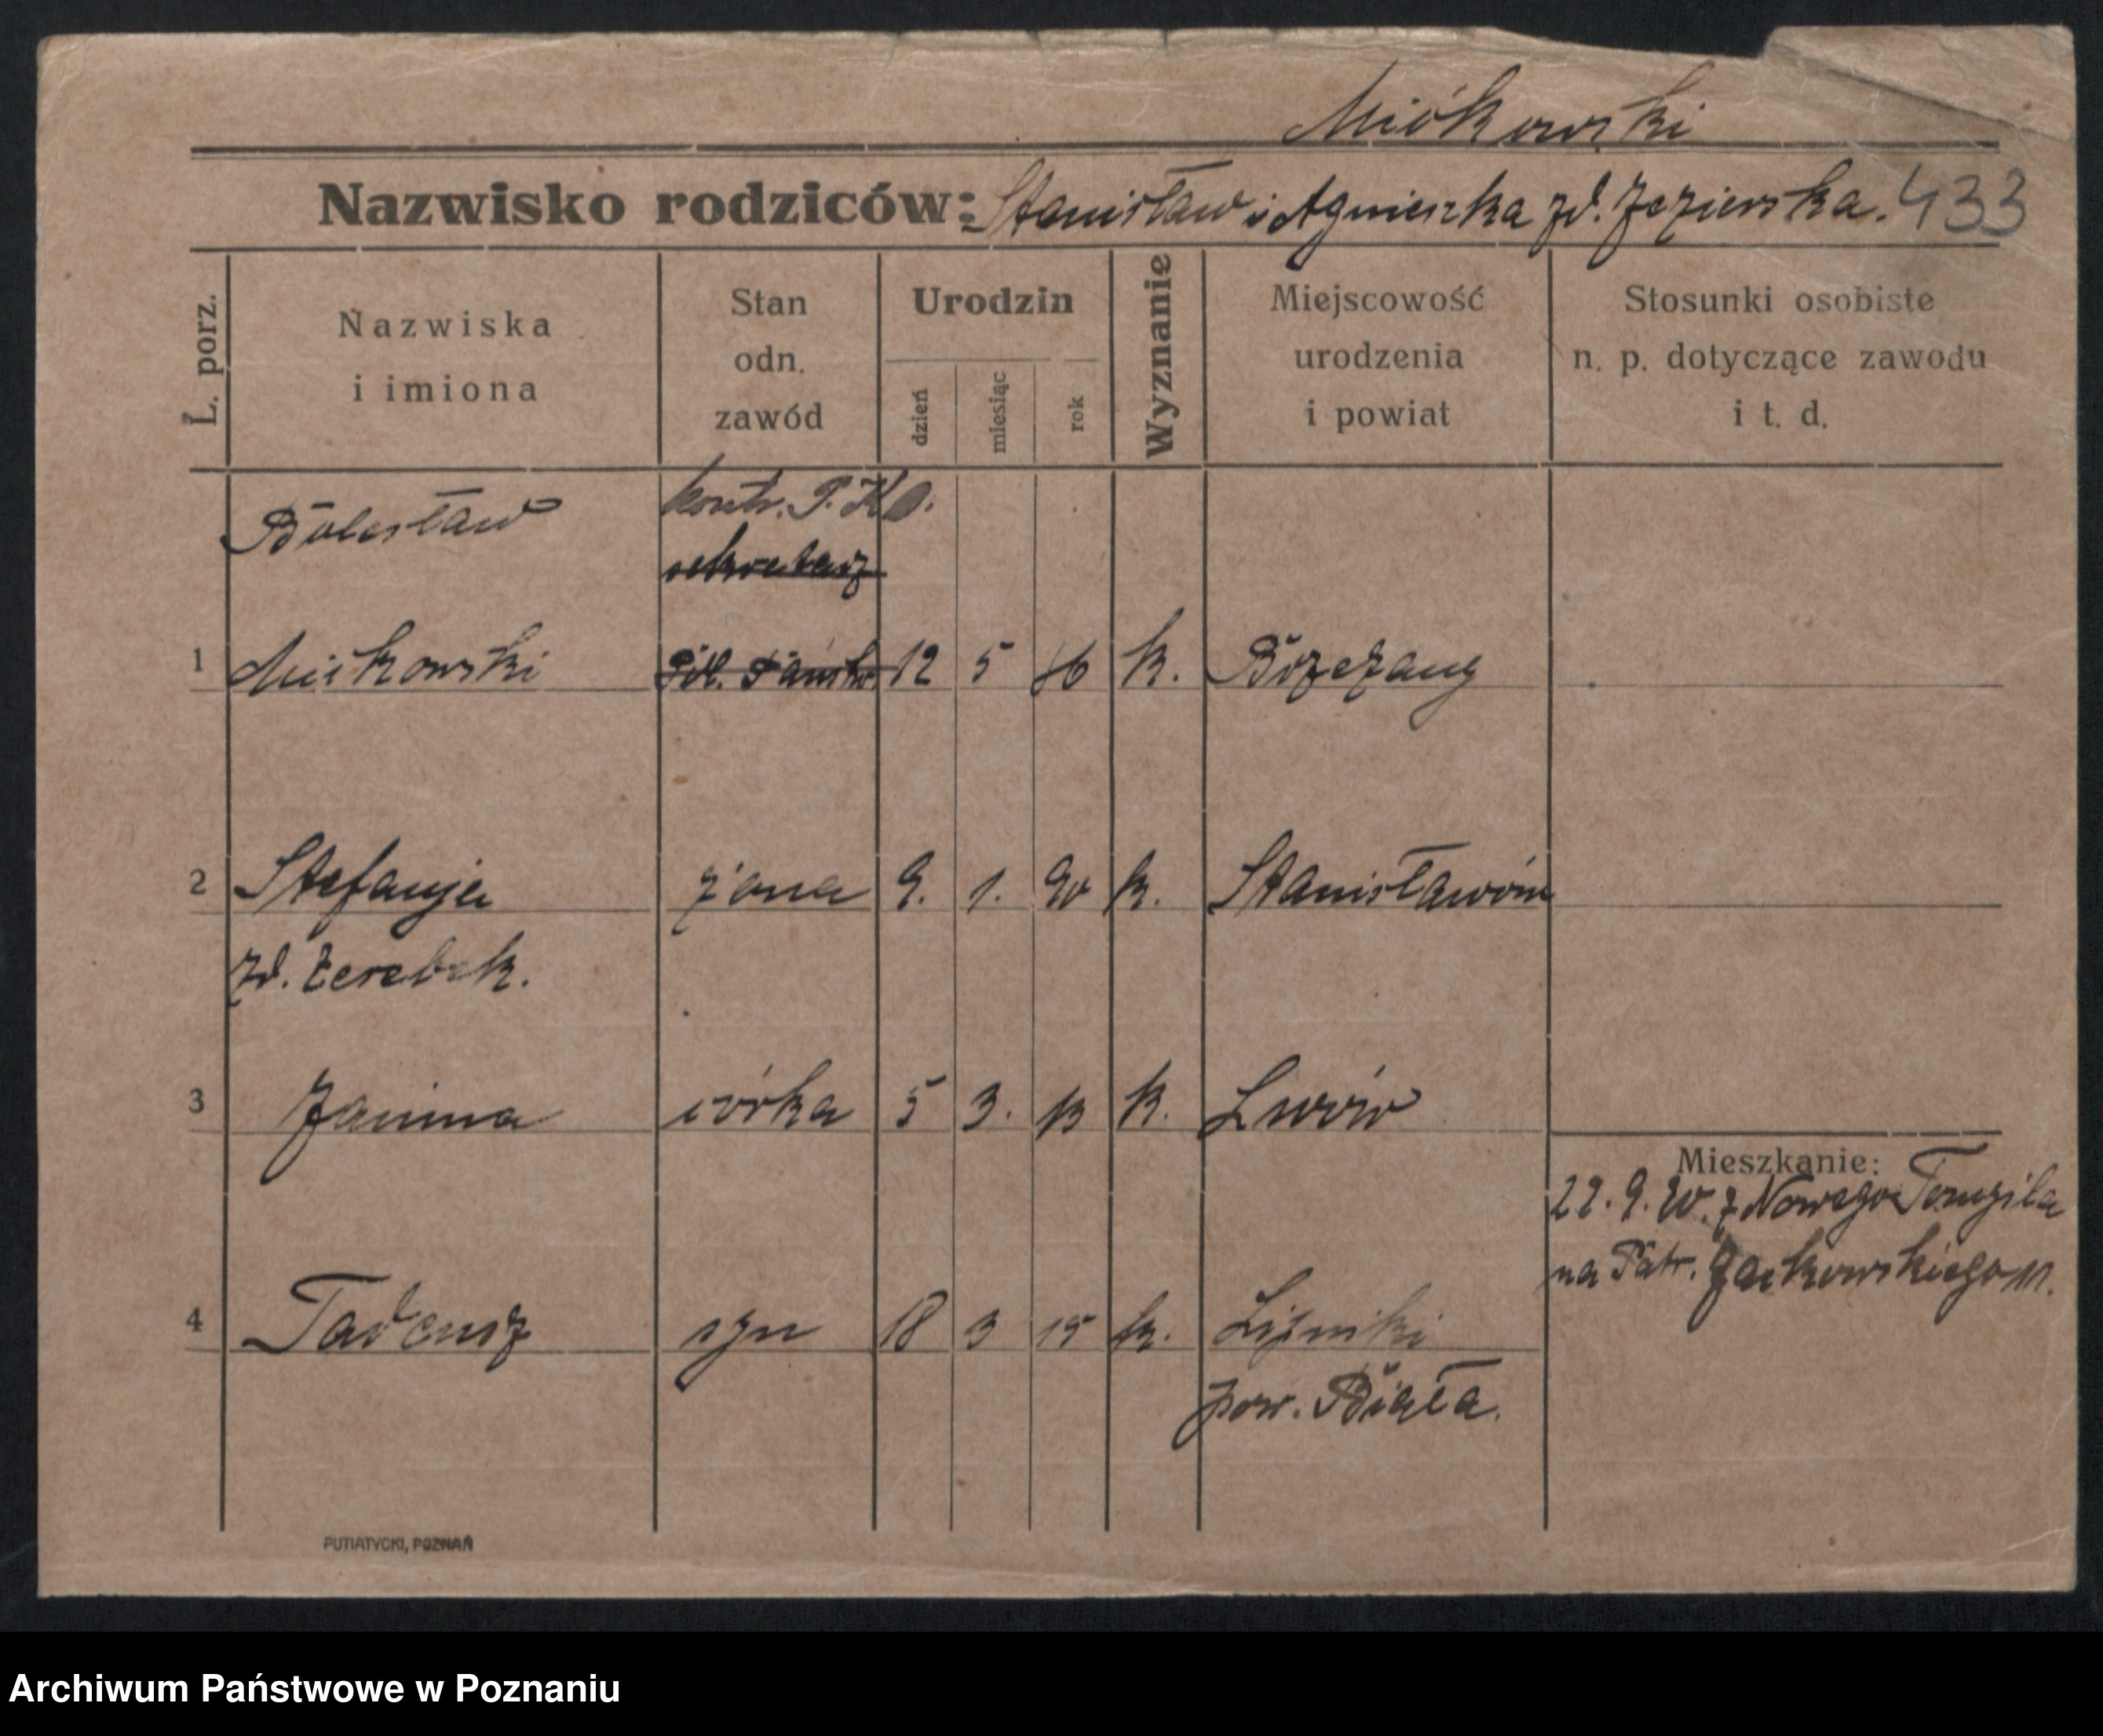 Miśkowski
Nazwisko rodziców: Stanisław i Agnieszka zd. Jezierska. 433
L. porz.
Nazwiska
i imiona
Stan
odn.
zawód
Urodzin
dzień
miesiąc
rok
Wyznanie
Miejscowość
urodzenia
i powiat
Stosunki osobiste
n. p. dotyczące zawodu
i t. d.
Bolesław kontr. P.K.O.
sekretarz
1 Miśkowski Państw. 12 5 86 k. Brzeżany
2 Stefanja żona 9. 1. 90 k. Stanisławów
zd. Żerebek.
3 Janina córka 5 3. 13 k. Lwów
Mieszkanie:
22. 9. z Nowego
na Patr. Jackowskiego
4 Tadeusz syn 18 3 15 k.
pow. Biała.
PUTIATYCKI, POZNAŃ
Archiwum Państwowe w Poznaniu